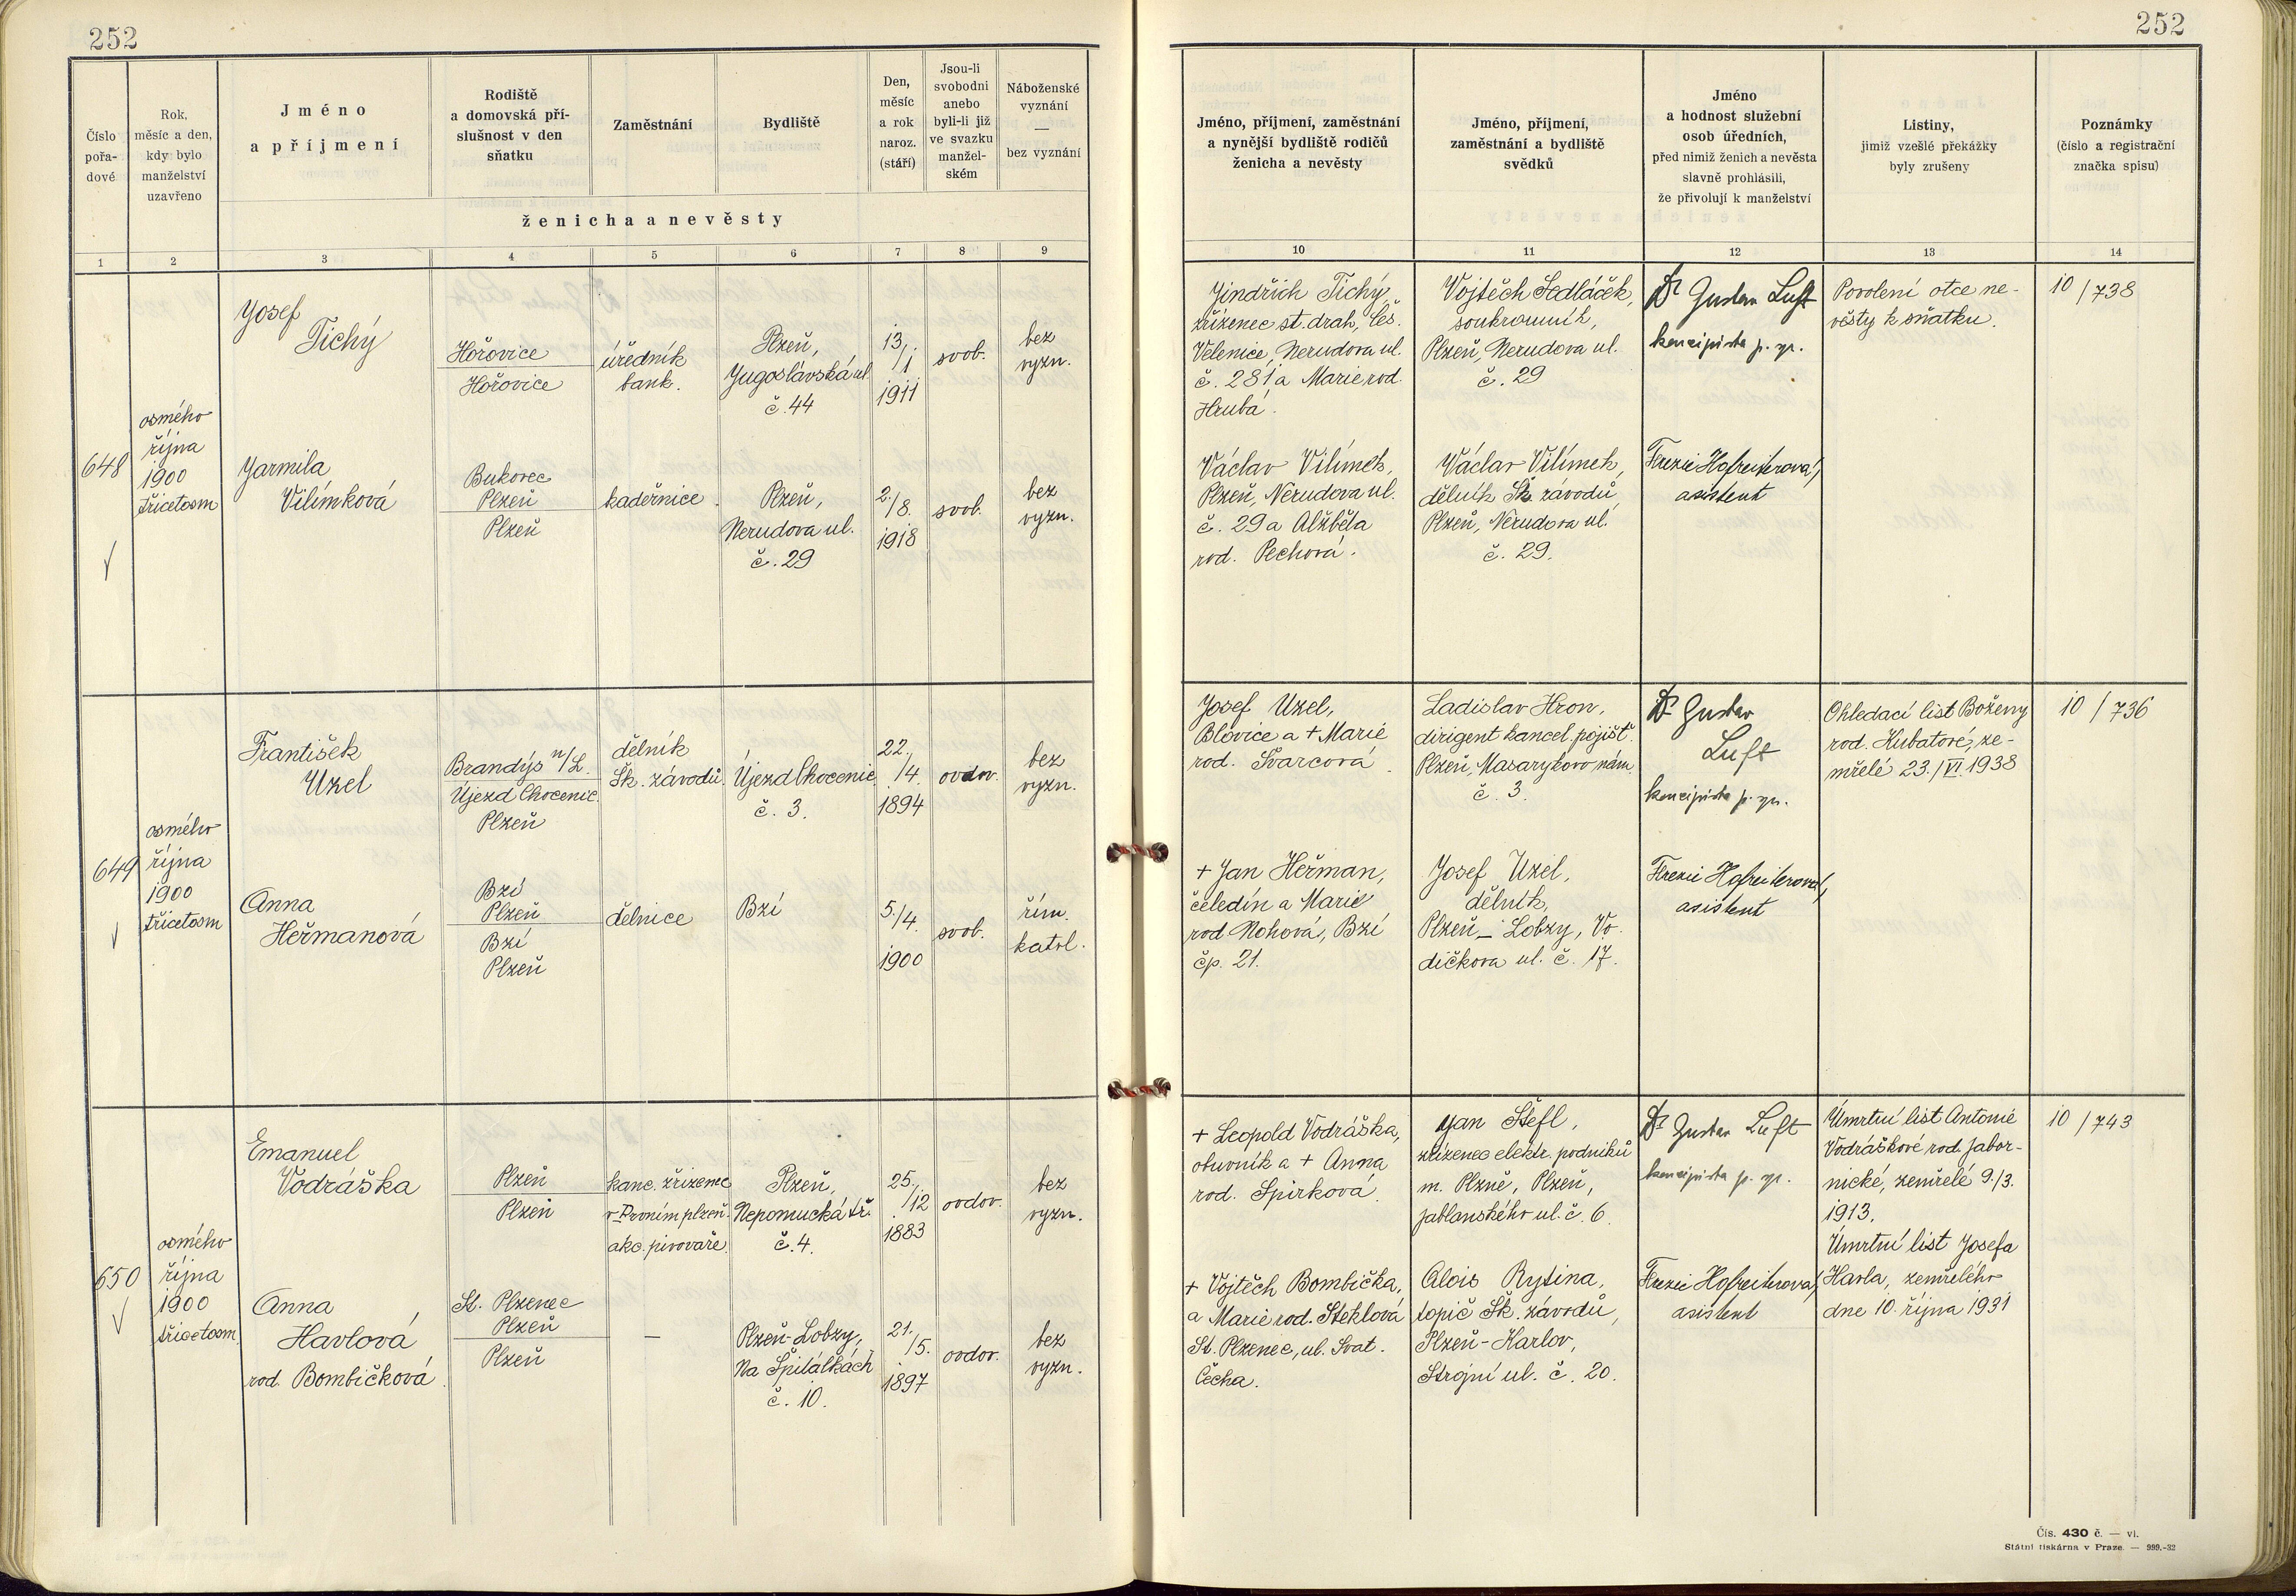 252
Číslo
pořa-
dové
Rok,
měsíc a den,
kdy bylo
manželství
uzavřeno
Jméno
a příjmení
Rodiště
a domovská pří-
slušnost v den
sňatku
Zaměstnání
Bydliště
Den,
měsíc
a rok
naroz.
(stáří)
Jsou-li
svobodni
anebo
byli-li již
ve svazku
manžel-
ském
Náboženské
vyznání
—
bez vyznání
ženicha a nevěsty
1 2 3 4 5 6 7 8 9
648
osmého
října
1900
třicetosm
Josef
Tichý
Hořovice
Hořovice
úředník
bank.
Plzeň,
Jugoslávská ul.
č. 44
13.
/1
1911
svob.
bez
vyzn.
Jarmila
Vilímková
Bukovec
Plzeň
Plzeň
kadeřnice.
Plzeň,
Nerudova ul.
č. 29
2.
/8.
1918
svob.
bez
vyzn.
649
osmého
října
1900
třicetosm
František
Uzel
Brandýs n/L.
Újezd Chocenic.
Plzeň
dělník
Šk. závodů.
Újezd Chocenic.
č. 3.
22.
/4.
1894
ovdov.
bez
vyzn.
Anna
Heřmanová
Bzí
Plzeň
Bzí
Plzeň
dělnice
Bzí
5.
/4.
1900
svob.
řím.
katol.
650
osmého
října
1900
třicetosm
Emanuel
Vodráška
Plzeň
Plzeň
kanc. zřízenec
v Prvním plzeň.
akc. pivovaře
Plzeň,
Nepomucká tř.
č. 4.
25.
/12
1883
ovdov.
bez
vyzn.
Anna
Havlová
rod. Bombičková.
St. Plzenec
Plzeň
Plzeň
—
Plzeň-Lobzy,
Na Špitálkách
č. 10.
21.
/5.
1897
ovdov.
bez
vyzn.
252
Jméno, příjmení, zaměstnání
a nynější bydliště rodičů
ženicha a nevěsty
Jméno, příjmení,
zaměstnání a bydliště
svědků
Jméno
a hodnost služební
osob úředních,
před nimiž ženich a nevěsta
slavně prohlásili,
že přivolují k manželství
Listiny,
jimiž vzešlé překážky
byly zrušeny
Poznámky
(číslo a registrační
značka spisu)
10 11 12 13 14
Jindřich Tichý,
zřízenec st. drah, Čes.
Velenice, Nerudova ul.
č. 281 a Marie rod.
Hrubá.
Vojtěch Sedláček,
soukromník,
Plzeň, Nerudova ul.
č. 29
Dr Gustav Luft
koncipista p. zpr.
Povolení otce ne-
věsty k sňatku.
10/738
Václav Vilímek,
Plzeň, Nerudova ul.
č. 29 a Alžběta
rod. Pechová.
Václav Vilímek,
dělník Šk. závodů,
Plzeň, Nerudova ul.
č. 29.
Terezie Hofreiterová,
asistent
Josef Uzel,
Blovice a + Marie
rod. Švarcová.
Ladislav Hron,
dirigent kancel. pojišť.
Plzeň, Masarykovo nám.
č. 3.
Dr Gustav
Luft
koncipista p. zpr.
Ohledací list Boženy
rod. Kubatové, ze-
mřelé 23./VI. 1938
10/736
+ Jan Heřman,
čeledín a Marie
rod. Nohová, Bzí
čp. 21.
Josef Uzel,
dělník,
Plzeň – Lobzy, Vo-
dičkova ul. č. 17.
Terezie Hofreiterová,
asistent
+ Leopold Vodráška,
obuvník a + Anna
rod. Spirková.
Jan Štefl,
zřízenec elektr. podniků
m. Plzně, Plzeň,
Jablonského ul. č. 6.
Dr Gustav Luft
koncipista p. zpr.
Úmrtní list Antonie
Vodráškové rod. Jabor-
nické, zemřelé 9./3.
1913.
Úmrtní list Josefa
Havla, zemřelého
dne 10. října 1931
10/743
+ Vojtěch Bombička,
a Marie rod. Steklová
St. Plzenec, ul. Svat.
Čecha.
Alois Rytina,
topič Šk. závodů,
Plzeň-Karlov,
Strojní ul. č. 20.
Terezie Hofreiterová,
asistent
Čís. 430 č. — vl.
Státní tiskárna v Praze. — 999.-32